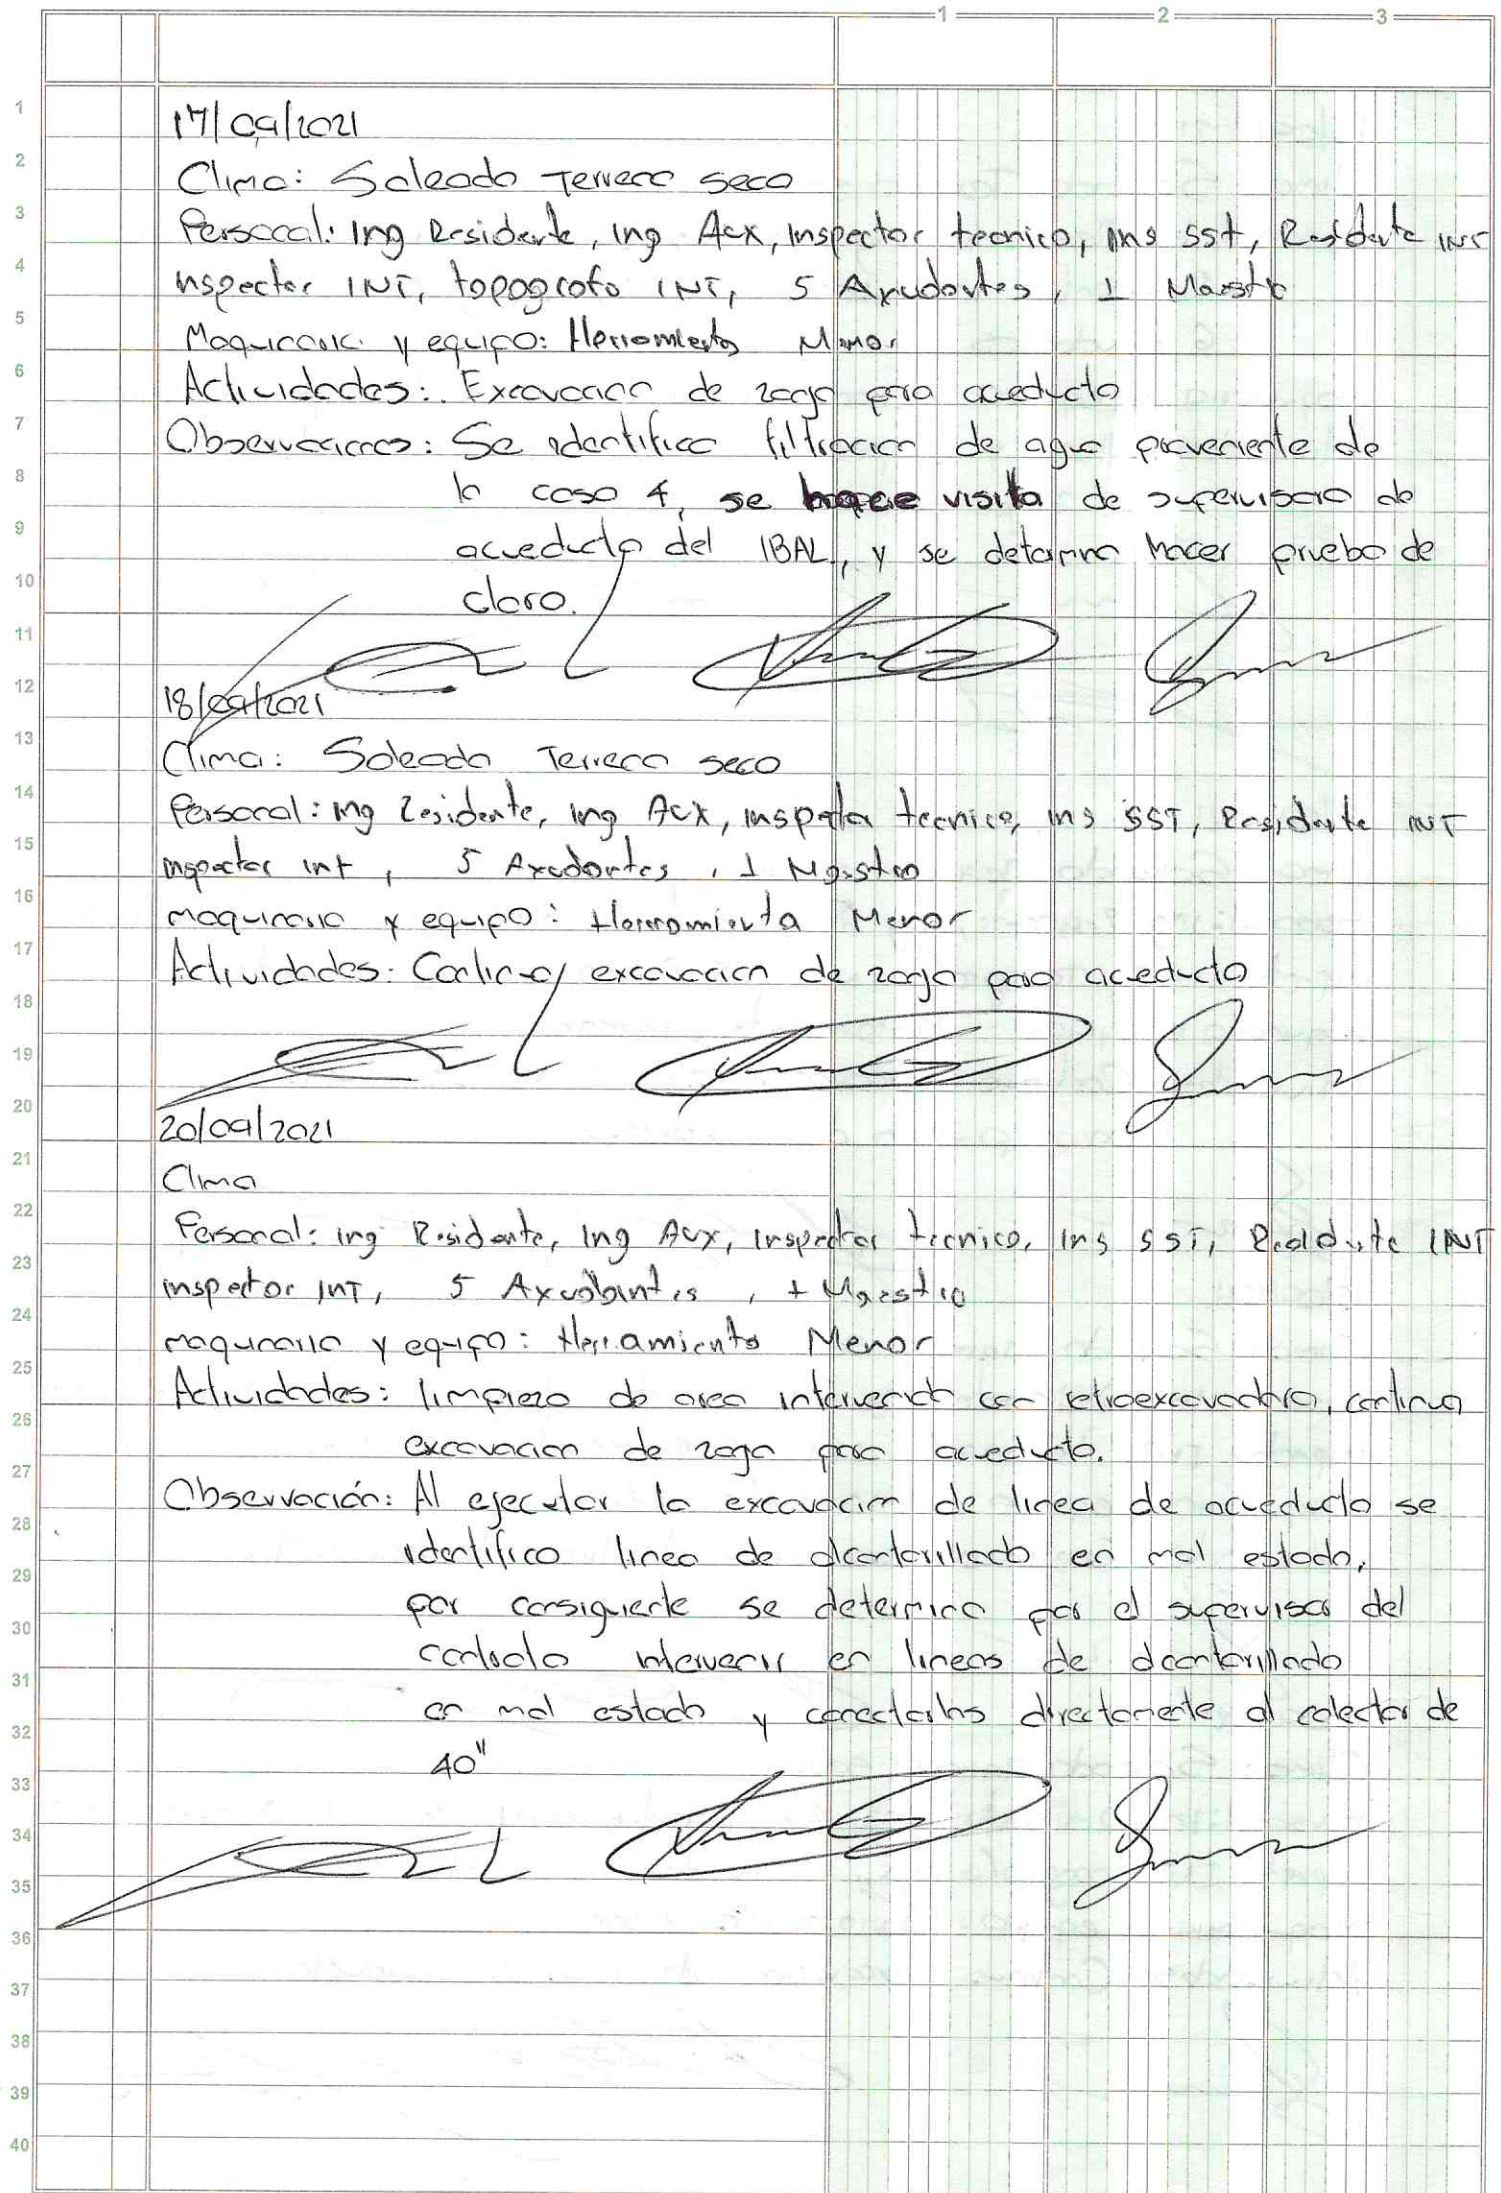 1 2 3
1 17/09/2021
2 Clima: Soleado Terreno seco
3 Personal: Ing Residente, Ing Aux, Inspector tecnico, ins sst, Residente INT
4 inspector INT, topografo INT, 5 Ayudantes, 1 Maestro
5 Maquinaria y equipo: Herramienta Menor
6 Actividades: Excavacion de zanja para acueducto
7 Observaciones: Se identifica filtracion de agua proveniente de
8 la casa 4, se hace visita de supervisora de
9 acueducto del IBAL, y se determina hacer prueba de
10 cloro.
11
12 18/09/2021
13 Clima: Soleado Terreno seco
14 Personal: ing Residente, ing Aux, inspector tecnico, ins SST, Residente INT
15 inspector int, 5 Ayudantes, 1 Maestro
16 maquinaria y equipo: Herramienta Menor
17 Actividades: Continua excavacion de zanja para acueducto
18
19
20 20/09/2021
21 Clima
22 Personal: ing Residente, Ing Aux, inspector tecnico, ins SST, Residente INT
23 inspector INT, 5 Ayudantes, 1 Maestro
24 maquinaria y equipo: Herramienta Menor
25 Actividades: limpieza de area intervenida con retroexcavadora, continua
26 excavacion de zanja para acueducto.
27 Observación: Al ejecutar la excavacion de linea de acueducto se
28 identifico linea de alcantarillado en mal estado,
29 por consiguiente se determina por el supervisor del
30 contrato intervenir en lineas de alcantarillado
31 en mal estado y conectarlas directamente al colector de
32 40"
33
34
35
36
37
38
39
40